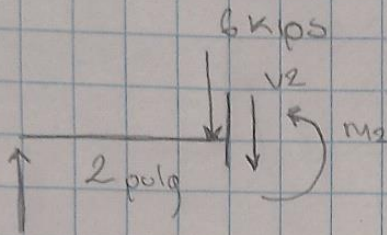 6 Kips
V2
M2
2 pulg